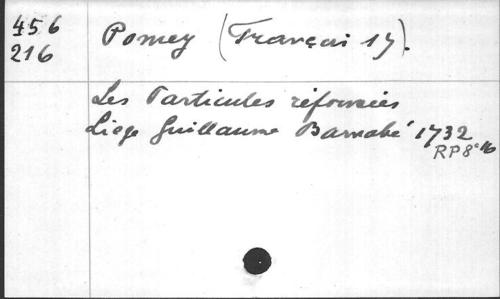 456 Pomey (François 17).
216
Les Particules réformées
Liege Guillaume Barnabé 1732
RP8°16